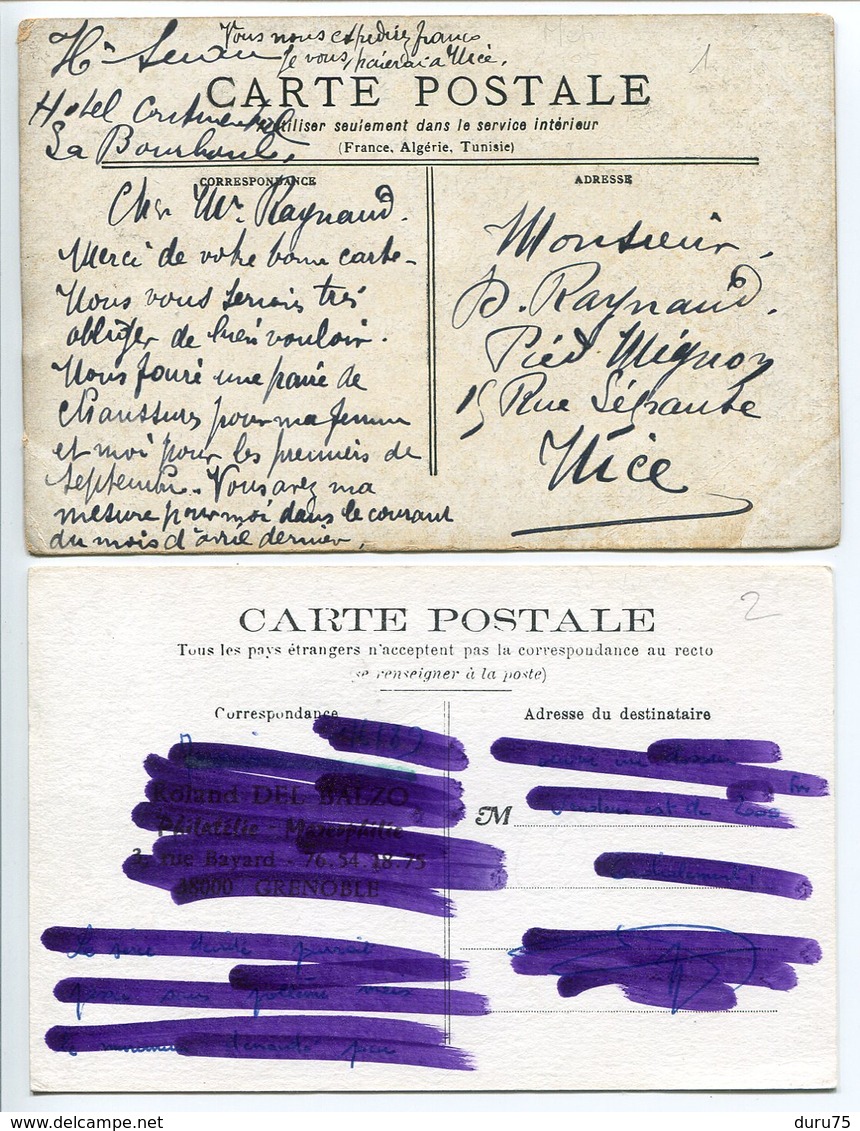 Vous nous expedirez franco
je vous paierai a Nice.
Hri
Hotel Continental
La Bourboule,
1
CARTE POSTALE
utiliser seulement dans le service intérieur
(France, Algérie, Tunisie)
CORRESPONDANCE
Cher Mr. Raynaud.
Merci de votre bonne carte -
Nous vous serions très
obliger de bien vouloir.
Nous faire une paire de
chaussures pour ma femme
et moi pour les premiers de
septembre. Vous avez ma
mesure pour moi dans le courant
du mois d'avril dernier,
ADRESSE
Monsieur,
Raynaud.
Pied Mignon
15 Rue Ségurane
Nice
2
CARTE POSTALE
Tous les pays étrangers n'acceptent pas la correspondance au recto
(se renseigner à la poste)
Correspondance
Roland DEL BALZO
Philatélie - Marcophilie
3, rue Bayard - 76.54.18.75
38000 GRENOBLE
Adresse du destinataire
M
est de 2000
Cordialement
duru75